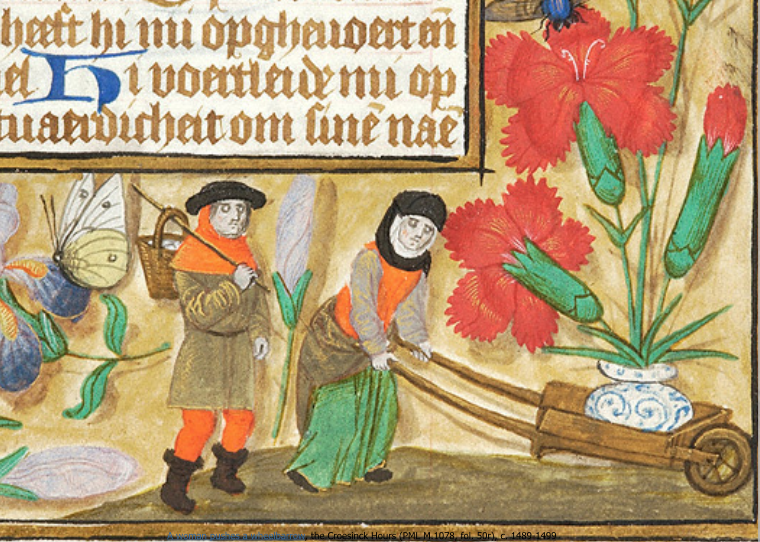 heeft hi mi opgheuoert en̄
el Hi voertleide mi op
tuaerdicheit om sinē naē
the Croesinck Hours (PML M.1078, fol. 50r), c. 1489-1499